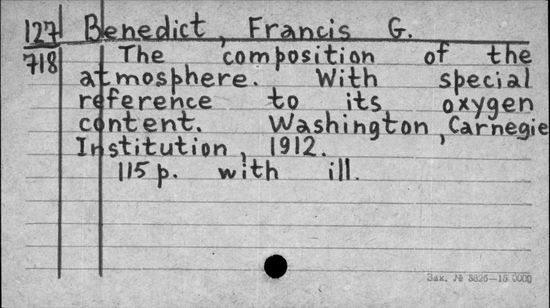 127 Benedict, Francis G.
718 The composition of the
atmosphere. With special
reference to its oxygen
content. Washington, Carnegie
Institution, 1912.
115 p. with ill.
Зак. № 3826—15 000